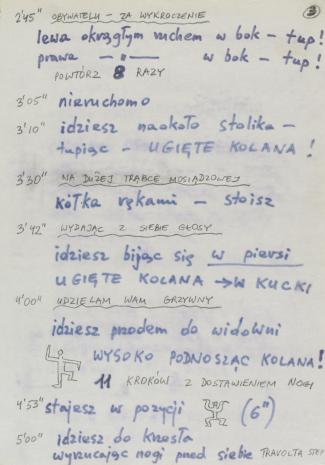 3
2'45" OBYWATELU - ZA WYKROCZENIE
lewa okrągłym ruchem w bok - tup!
prawa —"— w bok - tup!
POWTÓRZ 8 RAZY
3'05" nieruchomo
3'10" idziesz naokoło stolika -
tupiąc - UGIĘTE KOLANA!
3'30" NA DUŻEJ TRĄBCE MOSIĄDZOWEJ
kółka rękami - stoisz
3'42" WYDAJĄC Z SIEBIE GŁOSY
idziesz bijąc się w piersi
UGIĘTE KOLANA → W KUCKI
4'00" UDZIELAM WAM GRZYWNY
idziesz przodem do widowni
WYSOKO PODNOSZĄC KOLANA!
11 KROKÓW Z DOSTAWIENIEM NOGI
4'53" stajesz w pozycji (6")
5'00" idziesz do krzesła
wyrzucając nogi przed siebie TRAVOLTA STEP